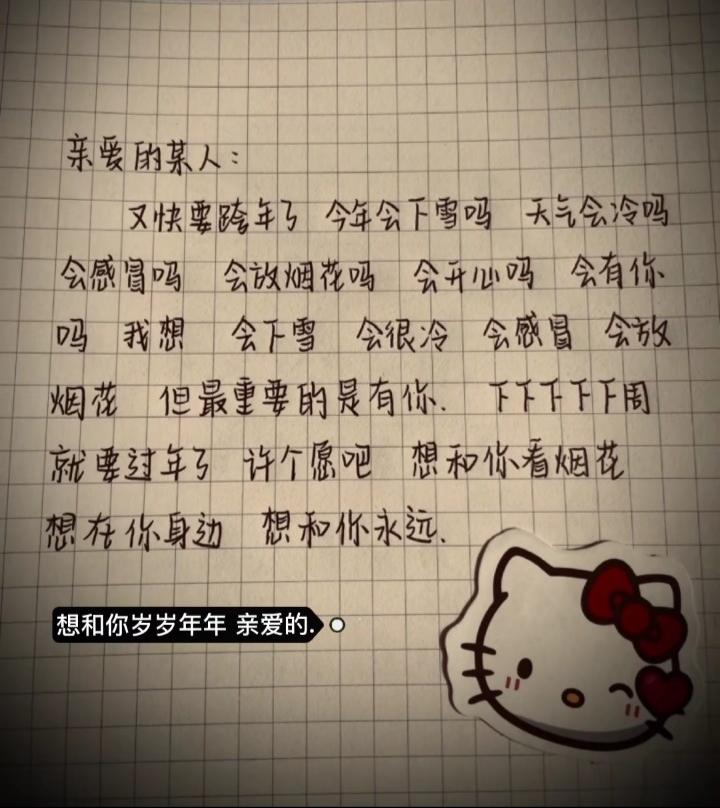 亲爱的某人：
又快要跨年了 今年会下雪吗 天气会冷吗
会感冒吗 会放烟花吗 会开心吗 会有你
吗 我想 会下雪 会很冷 会感冒 会放
烟花 但最重要的是有你. 下下下下下周
就要过年了 许个愿吧 想和你看烟花
想在你身边 想和你永远.
想和你岁岁年年 亲爱的.